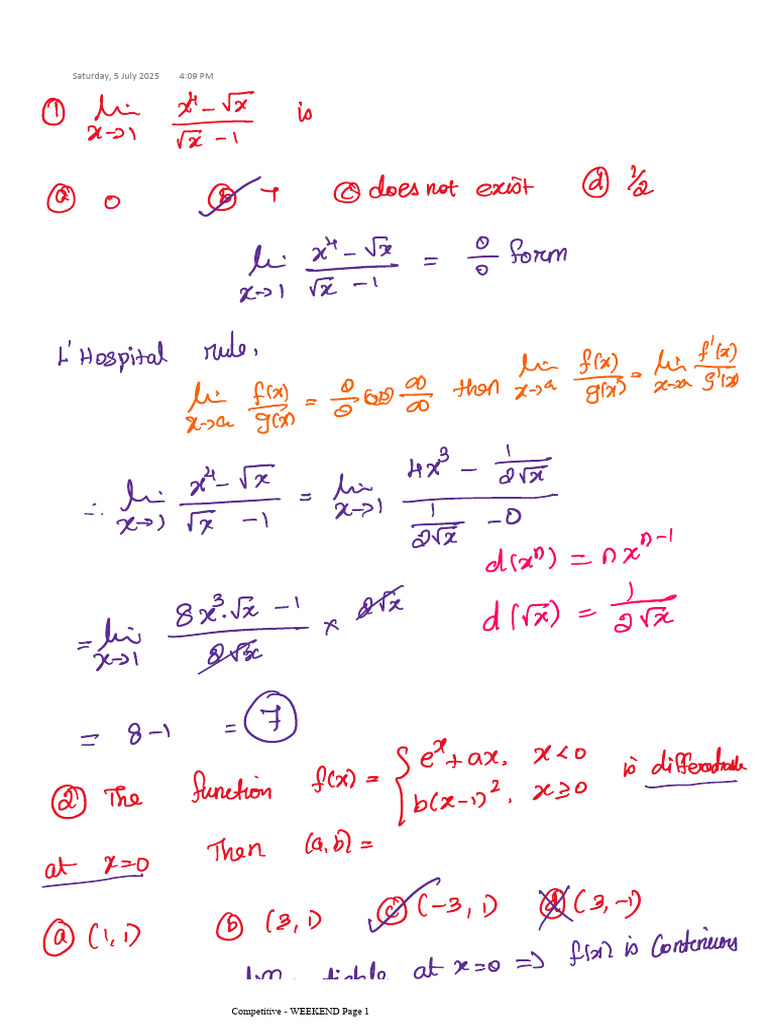 Saturday, 5 July 2025 4:09 PM
① lim x→1 (x⁴ - √x)/(√x - 1) is
ⓐ 0 ⓑ 7 ⓒ does not exist ⓓ 1/2
lim x→1 (x⁴ - √x)/(√x - 1) = 0/0 form
L' Hospital rule,
lim x→a f(x)/g(x) = 0/0 (or) ∞/∞ then lim x→a f(x)/g(x) = lim x→a f'(x)/g'(x)
∴ lim x→1 (x⁴ - √x)/(√x - 1) = lim x→1 (4x³ - 1/(2√x))/(1/(2√x) - 0)
d(xⁿ) = nxⁿ⁻¹
= lim x→1 (8x³·√x - 1)/(2√x) × 2√x
d(√x) = 1/(2√x)
= 8-1 = 7
② The function f(x) = { eˣ + ax, x<0 is differentiable
b(x-1)², x≥0
at x=0 Then (a,b) =
ⓐ (1,1) ⓑ (3,1) ⓒ (-3,1) ⓓ (3,-1)
at x=0 ⇒ f(x) is Continuous
Competitive - WEEKEND Page 1